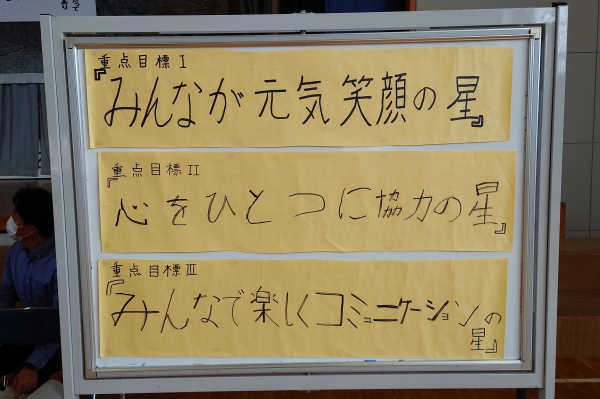 重点目標Ⅰ
『みんなが元気笑顔の星』
重点目標ⅠⅠ
『心をひとつに協力の星』
重点目標Ⅲ
『みんなで楽しくコミュニケーションの星』